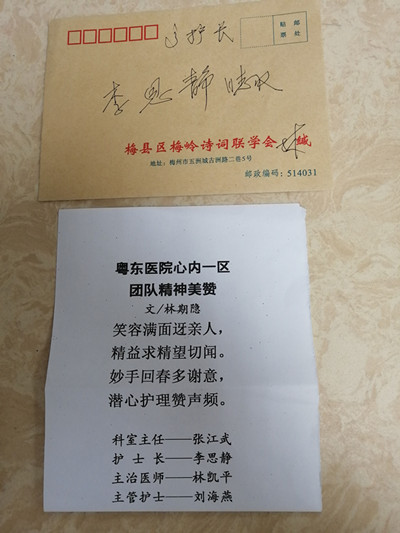 护长
贴 邮
票 处
李思静 收
梅县区梅岭诗词联学会 林 缄
地址：梅州市五洲城古洲路二巷5号
邮政编码：514031
粤东医院心内一区
团队精神美赞
文/林期隐
笑容满面迓亲人，
精益求精望切闻。
妙手回春多谢意，
潜心护理赞声频。
科室主任——张江武
护 士 长——李思静
主治医师——林凯平
主管护士——刘海燕